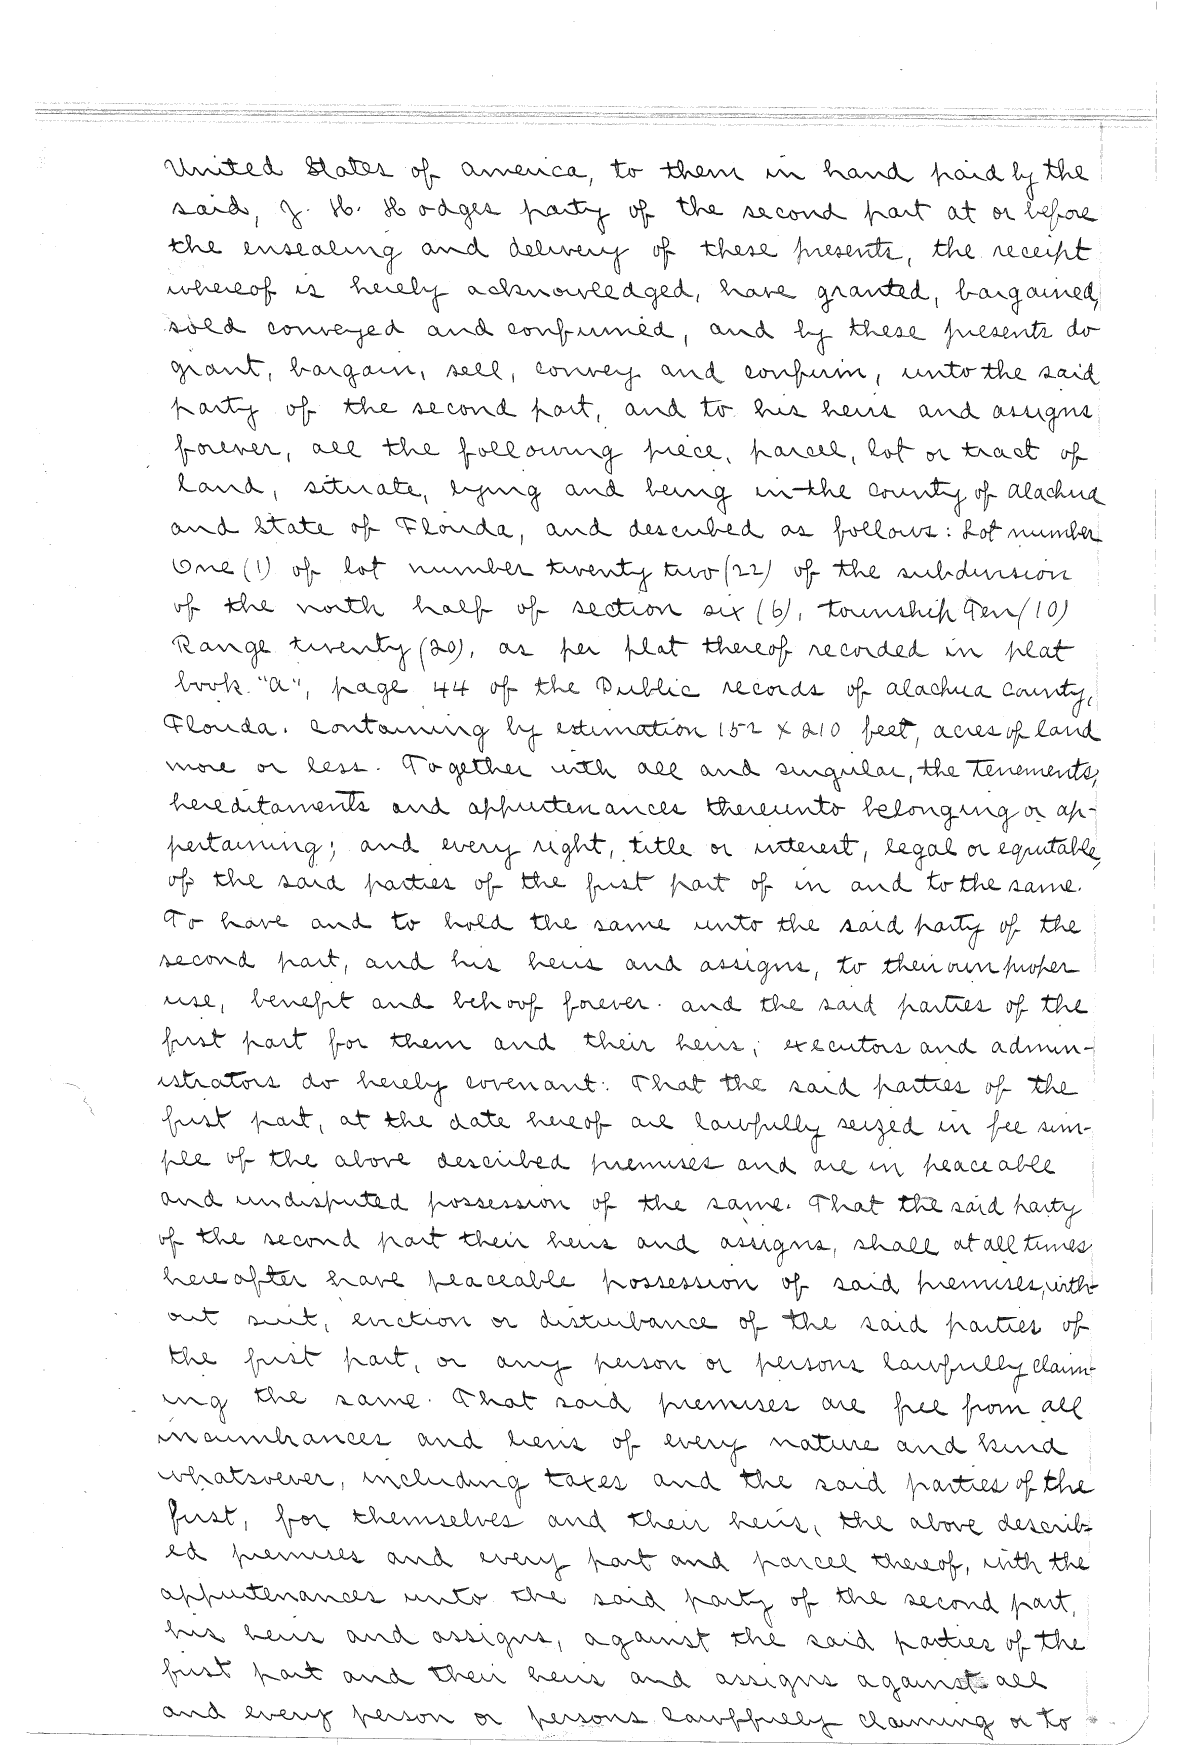 United States of america, to them in hand paid by the
said, J. H. Hodges party of the second part at or before
the ensealing and delivery of these presents, the receipt
whereof is hereby acknowledged, have granted, bargained,
sold conveyed and confirmed, and by these presents do
grant, bargain, sell, convey and confirm, unto the said
party of the second part, and to his heirs and assigns
forever, all the following piece, parcel, lot or tract of
land, situate, lying and being in the county of alachua
and State of Florida, and described as follows: Lot number
One (1) of lot number twenty two (22) of the subdivision
of the north half of section six (6), township Ten (10)
Range twenty (20), as per plat thereof recorded in plat
book "a", page 44 of the Public records of alachua county,
Florida. containing by estimation 152 x 210 feet, acres of land
more or less. Together with all and singular, the tenements,
hereditaments and appurtenances thereunto belonging or ap-
pertaining; and every right, title or interest, legal or equitable,
of the said parties of the first part of in and to the same.
To have and to hold the same unto the said party of the
second part, and his heirs and assigns, to their own proper
use, benefit and behoof forever. and the said parties of the
first part for them and their heirs, executors and admin-
istrators do hereby covenant. That the said parties of the
first part, at the date hereof are lawfully seized in fee sim-
ple of the above described premises and are in peaceable
and undisputed possession of the same. That the said party
of the second part their heirs and assigns, shall at all times
hereafter have peaceable possession of said premises, with-
out suit, eviction or disturbance of the said parties of
the first part, or any person or persons lawfully claim-
ing the same. That said premises are free from all
incumbrances and liens of every nature and kind
whatsoever, including taxes and the said parties of the
first, for themselves and their heirs, the above describ-
ed premises and every part and parcel thereof, with the
appurtenances unto the said party of the second part,
his heirs and assigns, against the said parties of the
first part and their heirs and assigns against all
and every person or persons lawffully claiming or to